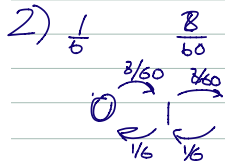 2) 1/6 8/60
8/60 8/60
0 1
1/6 1/6